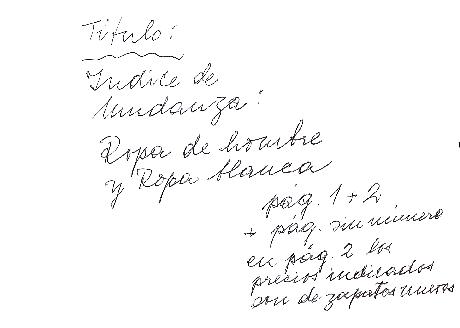 Título:
Indice de
Mudanza:
Ropa de hombre
y Ropa blanca
pág. 1 + 2
+ pág. sin número
en pág. 2 los
precios indicados
son de zapatos nuevos